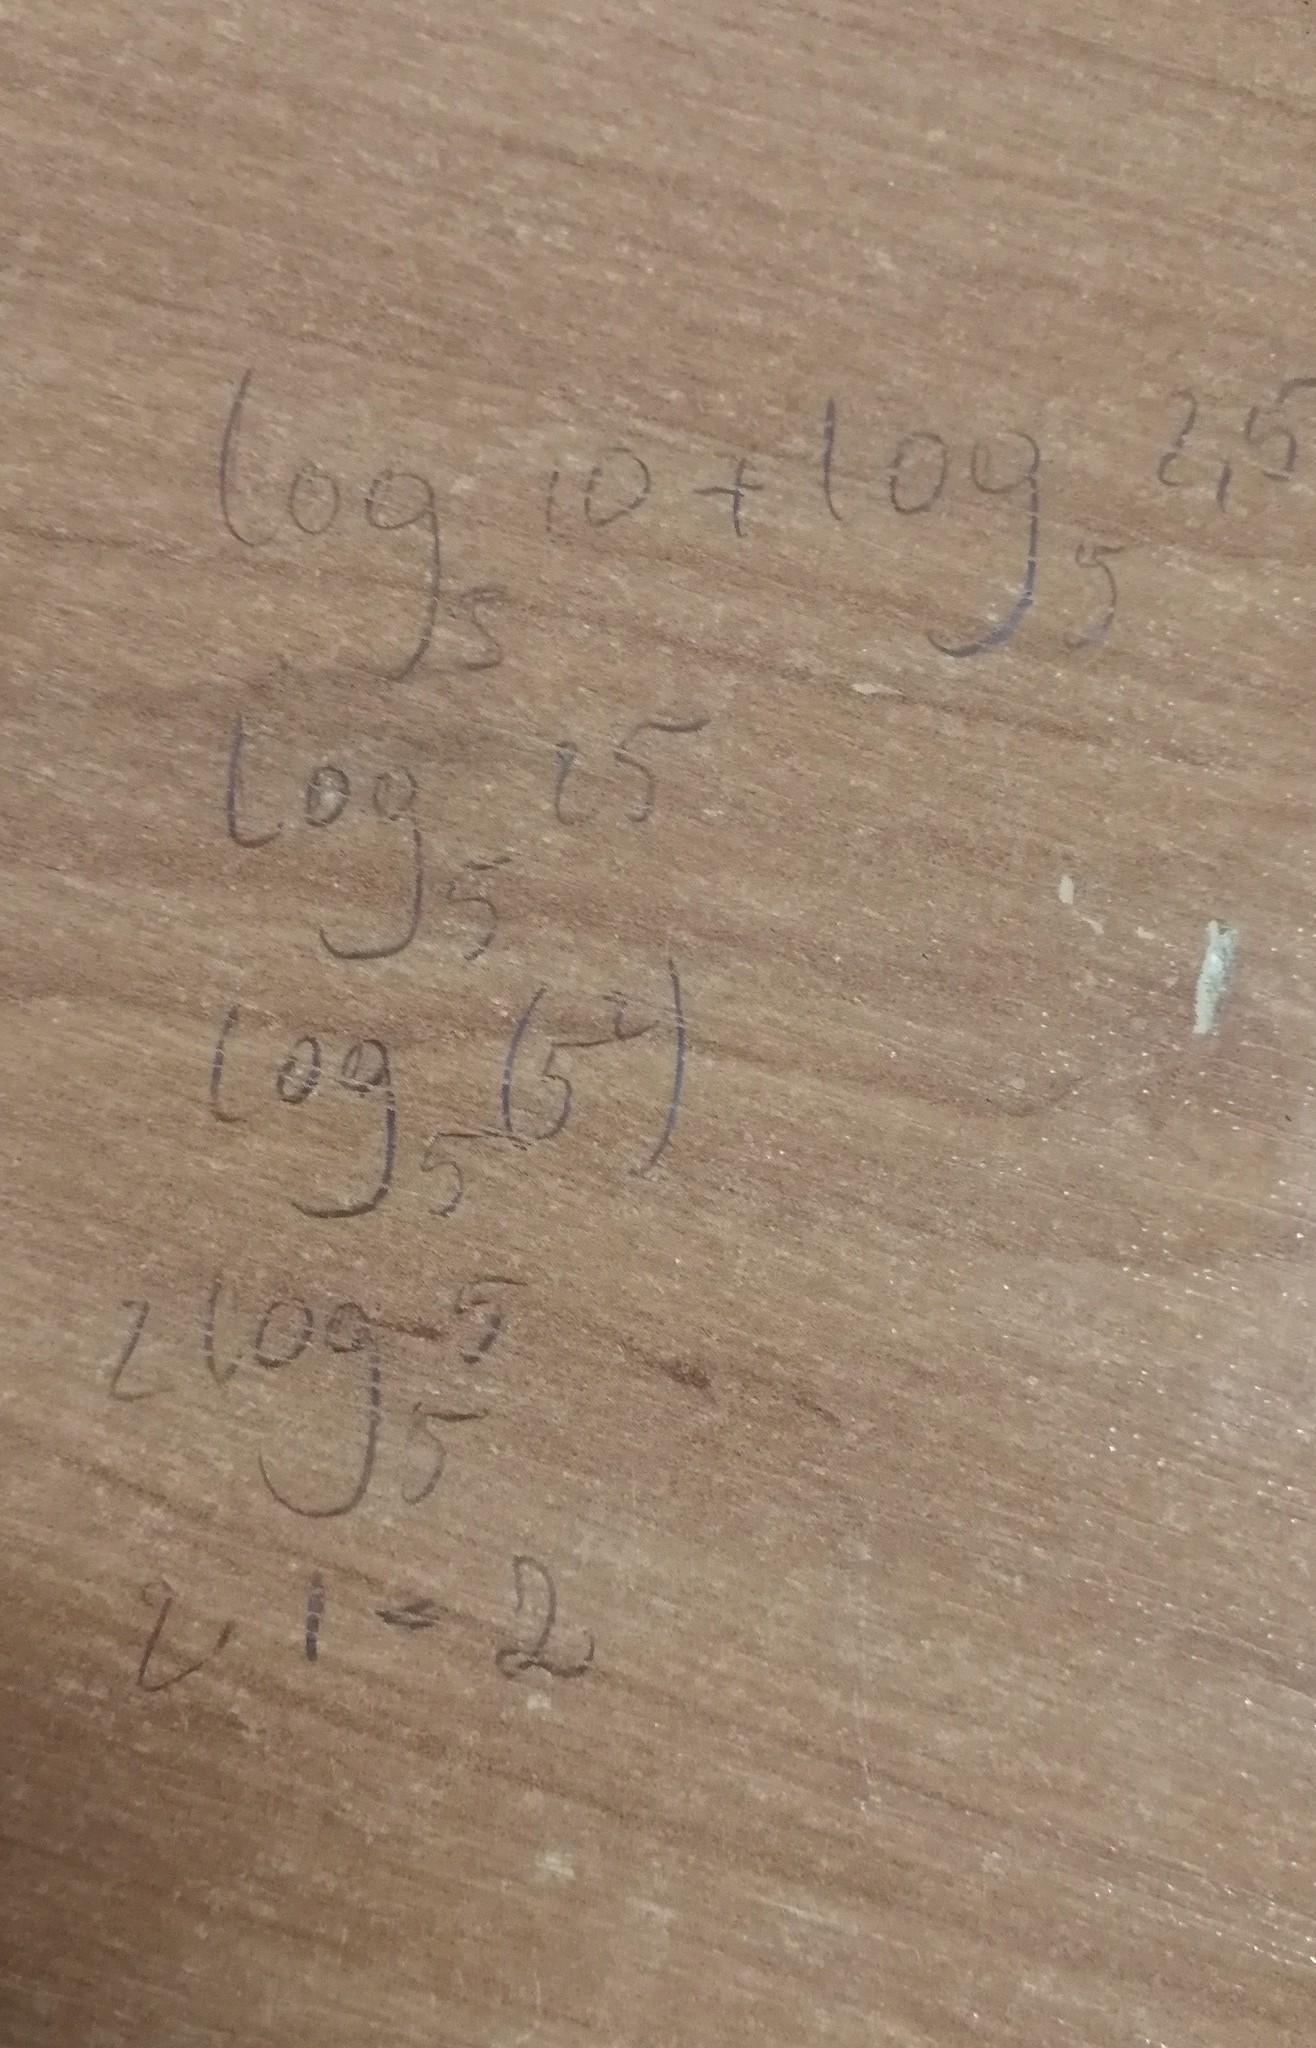 log₅ 10 + log₅ 2,5
log₅ 25
log₅ (5²)
2 log₅ 5
2 · 1 = 2